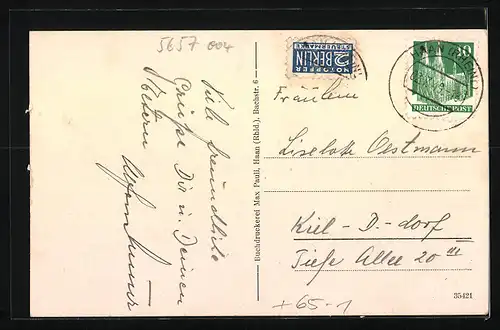 5657 004
Viele freundliche
Grüße Dir u. Deinen
Eltern
Buchdruckerei Max Pauli, Haan (Rhld.), Bachstr. 6
NOTOPFER
2 BERLIN
STEUERMARKE
10
DEUTSCHE POST
HAAN (RHEINL)
Fräulein
Liselotte Oestmann
Kiel-D-dorf
Tiefe Allee 20
+65-1
35421